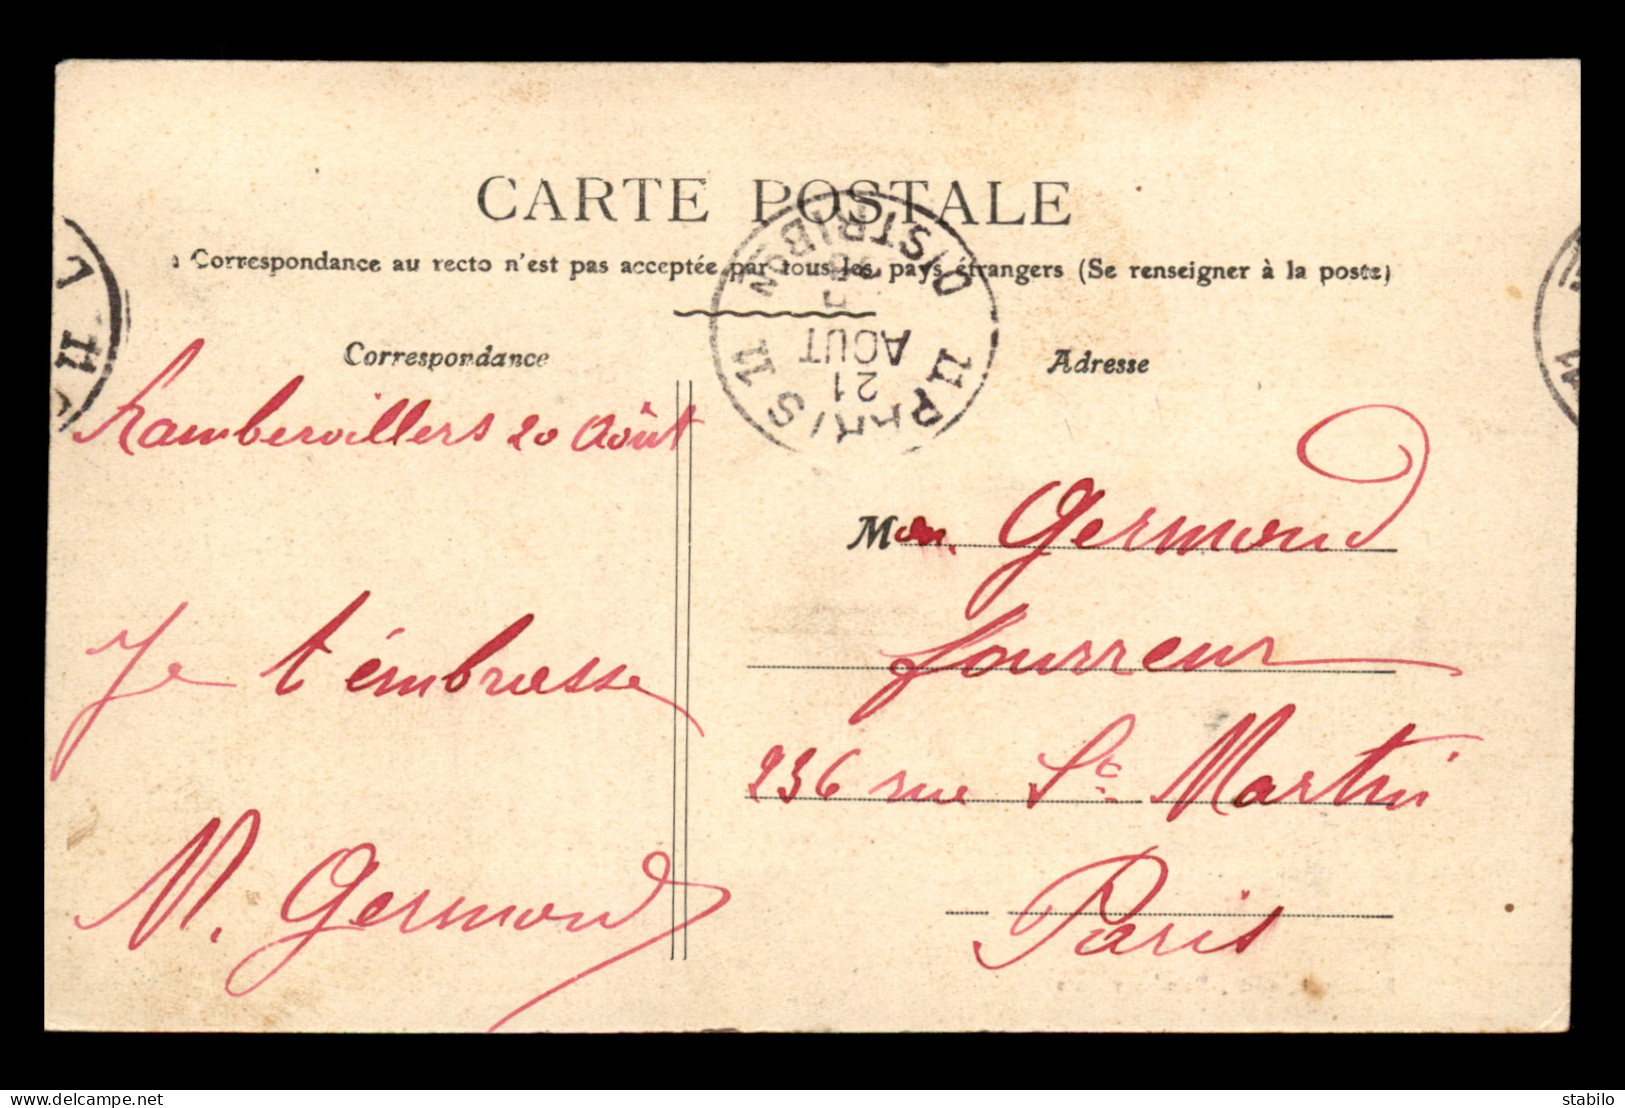 CARTE POSTALE
La Correspondance au recto n'est pas acceptée par tous les pays étrangers (Se renseigner à la poste)
Correspondance
Adresse
PARIS 11
DISTRIBON
21
AOUT
11
Rambervillers 20 Août
Je t'émbrasse
M. Germond
Mon. Germond
fourreur
236 rue St. Martin
Paris
www.delcampe.net
stabilo